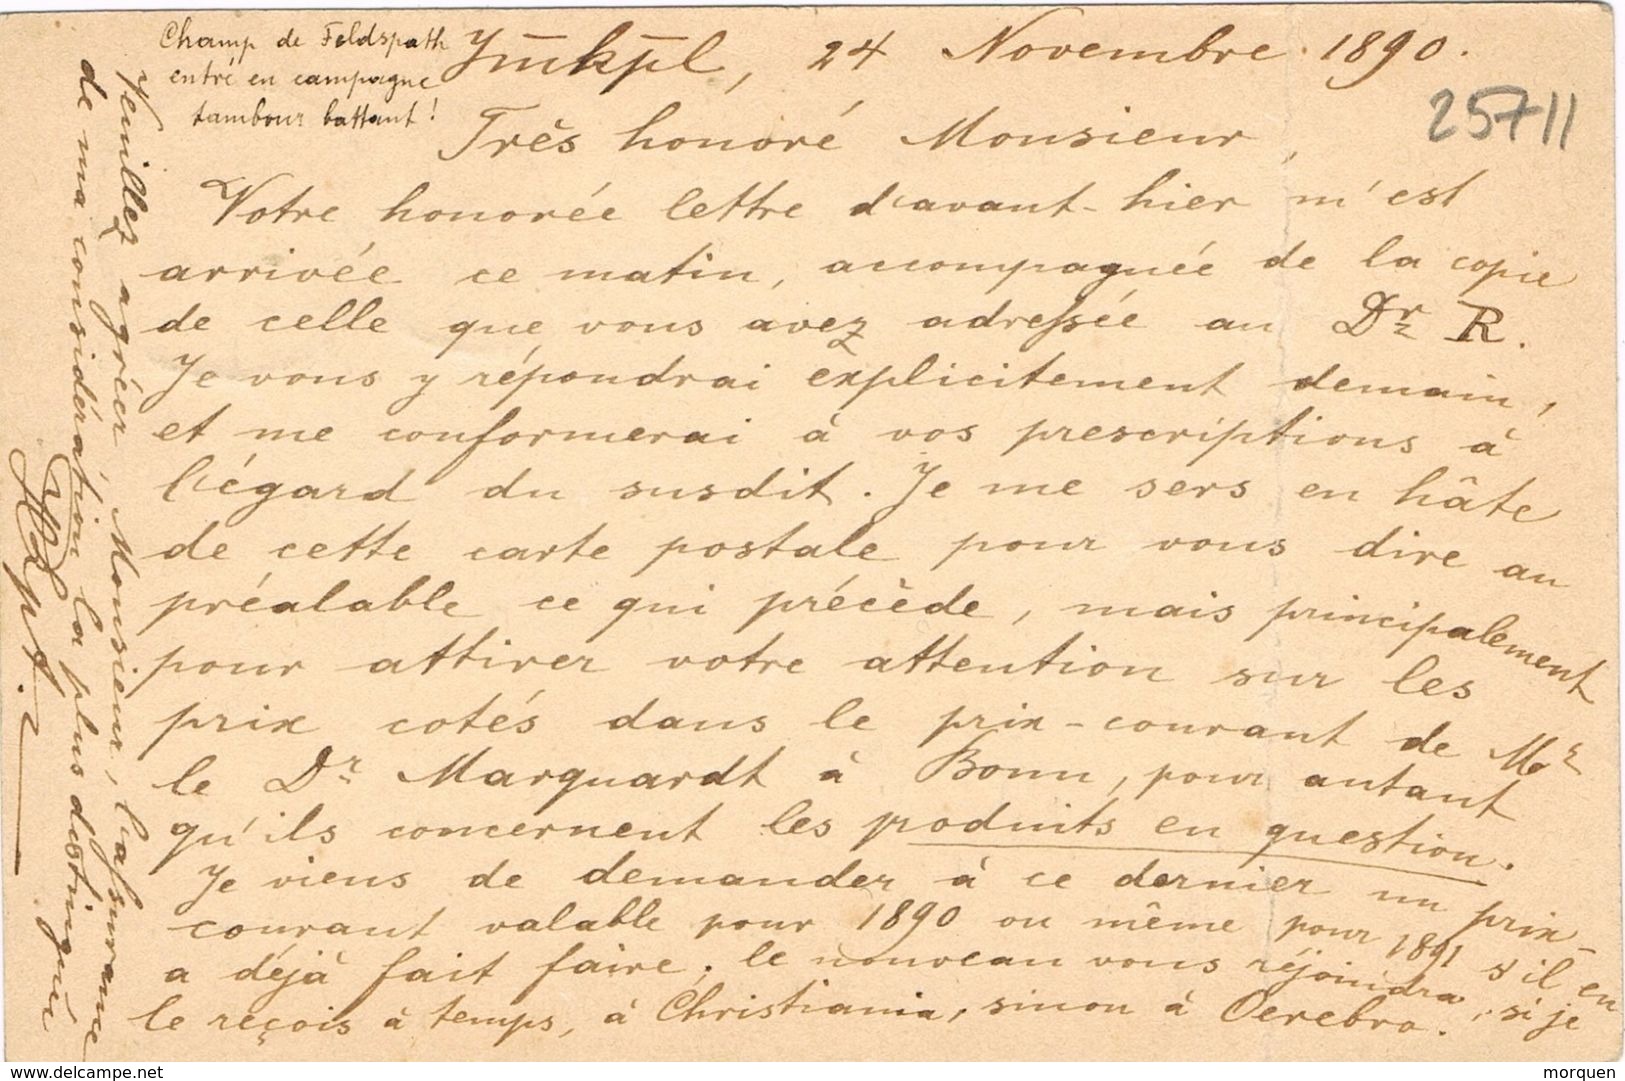 Champ de Feldspath
entré en campagne
tambour battant !
24 Novembre 1890.
25711
Très honoré Monsieur,
Votre honorée lettre d'avant-hier m'est
arrivée ce matin, accompagnée de la copie
de celle que vous avez adressée au Dr R.
Je vous y répondrai explicitement demain,
et me conformerai à vos prescriptions à
l'égard du susdit. Je me sers en hâte
de cette carte postale pour vous dire au
préalable ce qui précède, mais principalement
pour attirer votre attention sur les
prix cotés dans le prix-courant de Mr
le Dr Marquardt à Bonn, pour autant
qu'ils concernent les produits en question.
Je viens de demander à ce dernier un prix-
courant valable pour 1890 ou même pour 1891 s'il en
a déjà fait faire; le nouveau vous rejoindra, si je
le reçois à temps, à Christiania, sinon à Oerebro.
Veuillez agréer, Monsieur, l'assurance
de ma considération la plus distinguée
delcampe.net
morquen